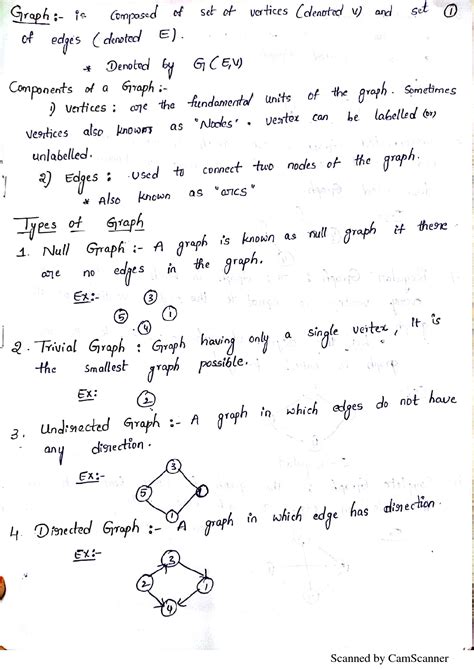 Graph :- is composed of set of vertices (denoted V) and set ①
of edges (denoted E).
* Denoted by G(E,V)
Components of a Graph :-
1) vertices : are the fundamental units of the graph. Sometimes
vertices also known as "Nodes". vertex can be labelled (or)
unlabelled.
2) Edges : used to connect two nodes of the graph.
* Also known as "arcs"
Types of Graph
1. Null Graph :- A graph is known as null graph if there
are no edges in the graph.
Ex:- 3
5 1
4
2. Trivial Graph : Graph having only a single vertex, It is
the smallest graph possible.
Ex: 2
3. Undirected Graph :- A graph in which edges do not have
any direction.
Ex:- 3
5
1
4. Directed Graph :- A graph in which edge has direction.
Ex:- 3
2 1
4
Scanned by CamScanner